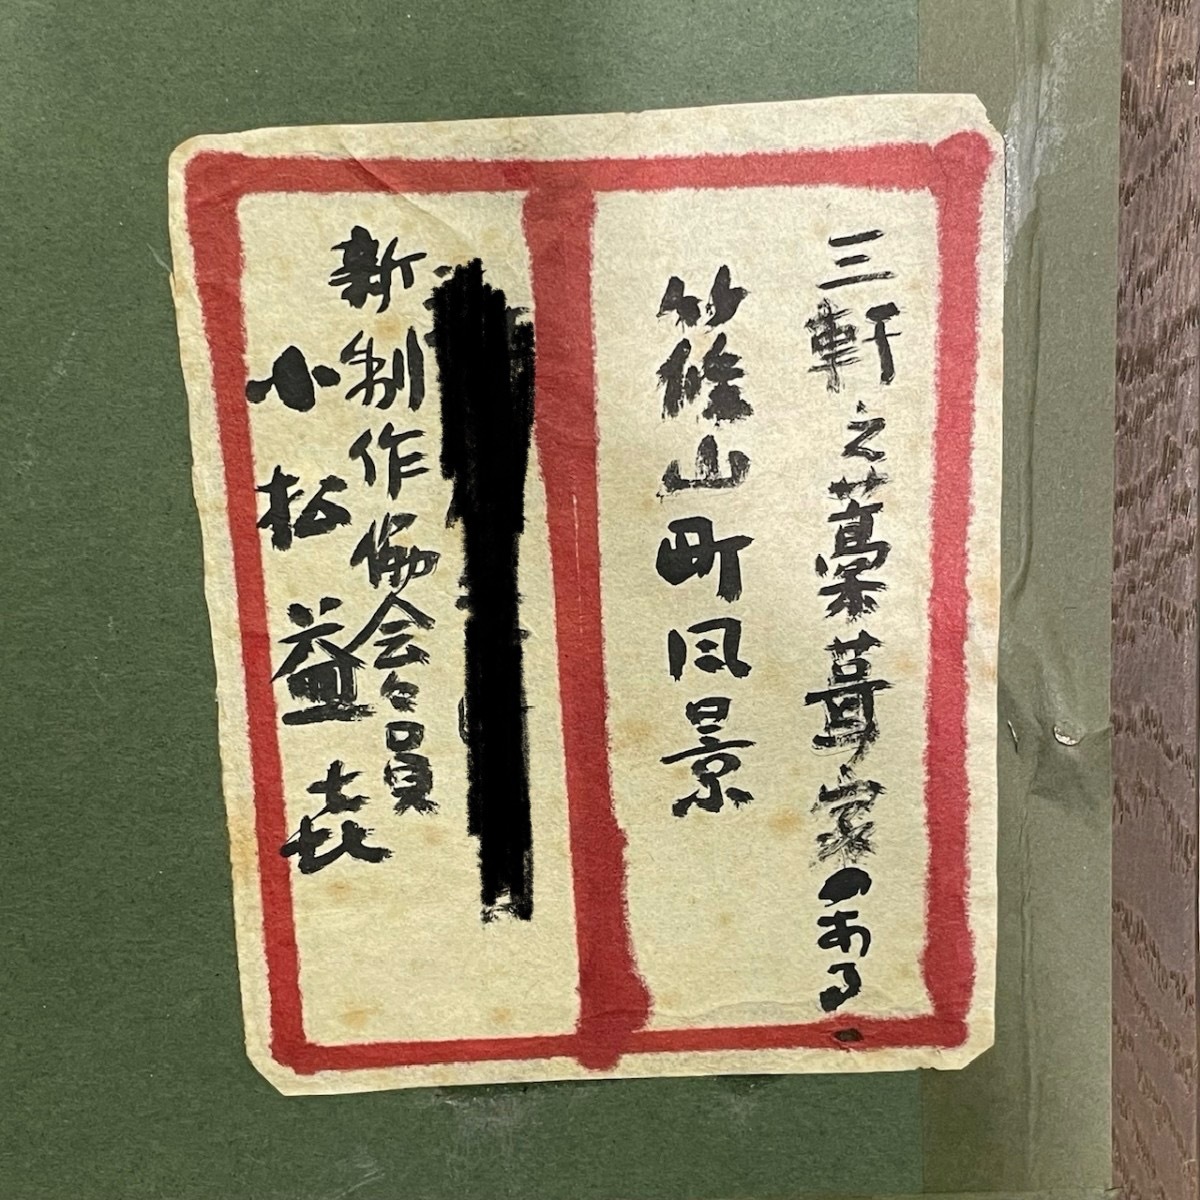 三軒之藁葺家のある
篠山町風景
新制作協会々員
小松益喜